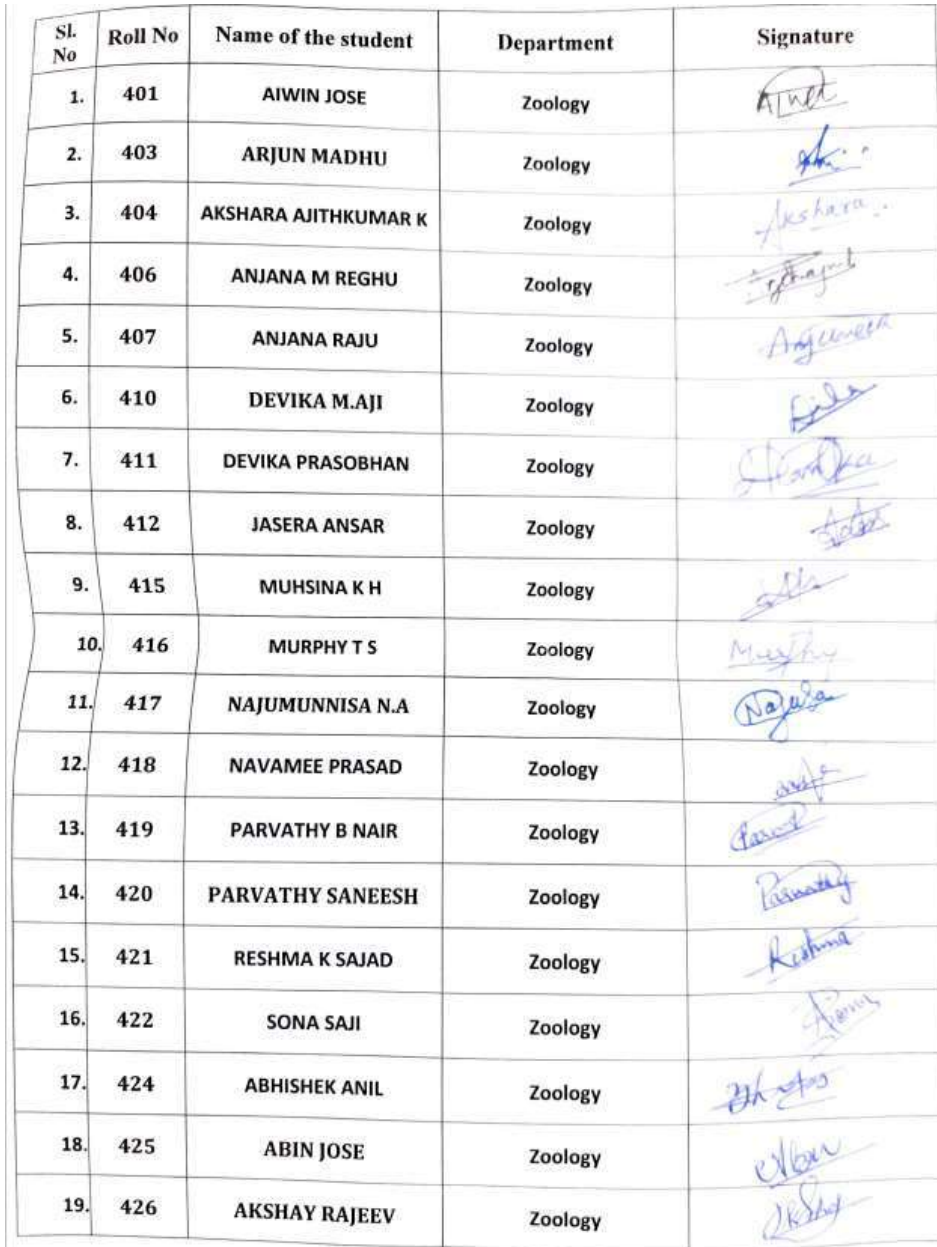 Sl. No Roll No Name of the student Department Signature
1. 401 AIWIN JOSE Zoology
2. 403 ARJUN MADHU Zoology
3. 404 AKSHARA AJITHKUMAR K Zoology Akshara
4. 406 ANJANA M REGHU Zoology
5. 407 ANJANA RAJU Zoology
6. 410 DEVIKA M.AJI Zoology
7. 411 DEVIKA PRASOBHAN Zoology
8. 412 JASERA ANSAR Zoology
9. 415 MUHSINA K H Zoology
10. 416 MURPHY T S Zoology Murphy
11. 417 NAJUMUNNISA N.A Zoology
12. 418 NAVAMEE PRASAD Zoology
13. 419 PARVATHY B NAIR Zoology
14. 420 PARVATHY SANEESH Zoology Parvathy
15. 421 RESHMA K SAJAD Zoology Reshma
16. 422 SONA SAJI Zoology
17. 424 ABHISHEK ANIL Zoology
18. 425 ABIN JOSE Zoology
19. 426 AKSHAY RAJEEV Zoology